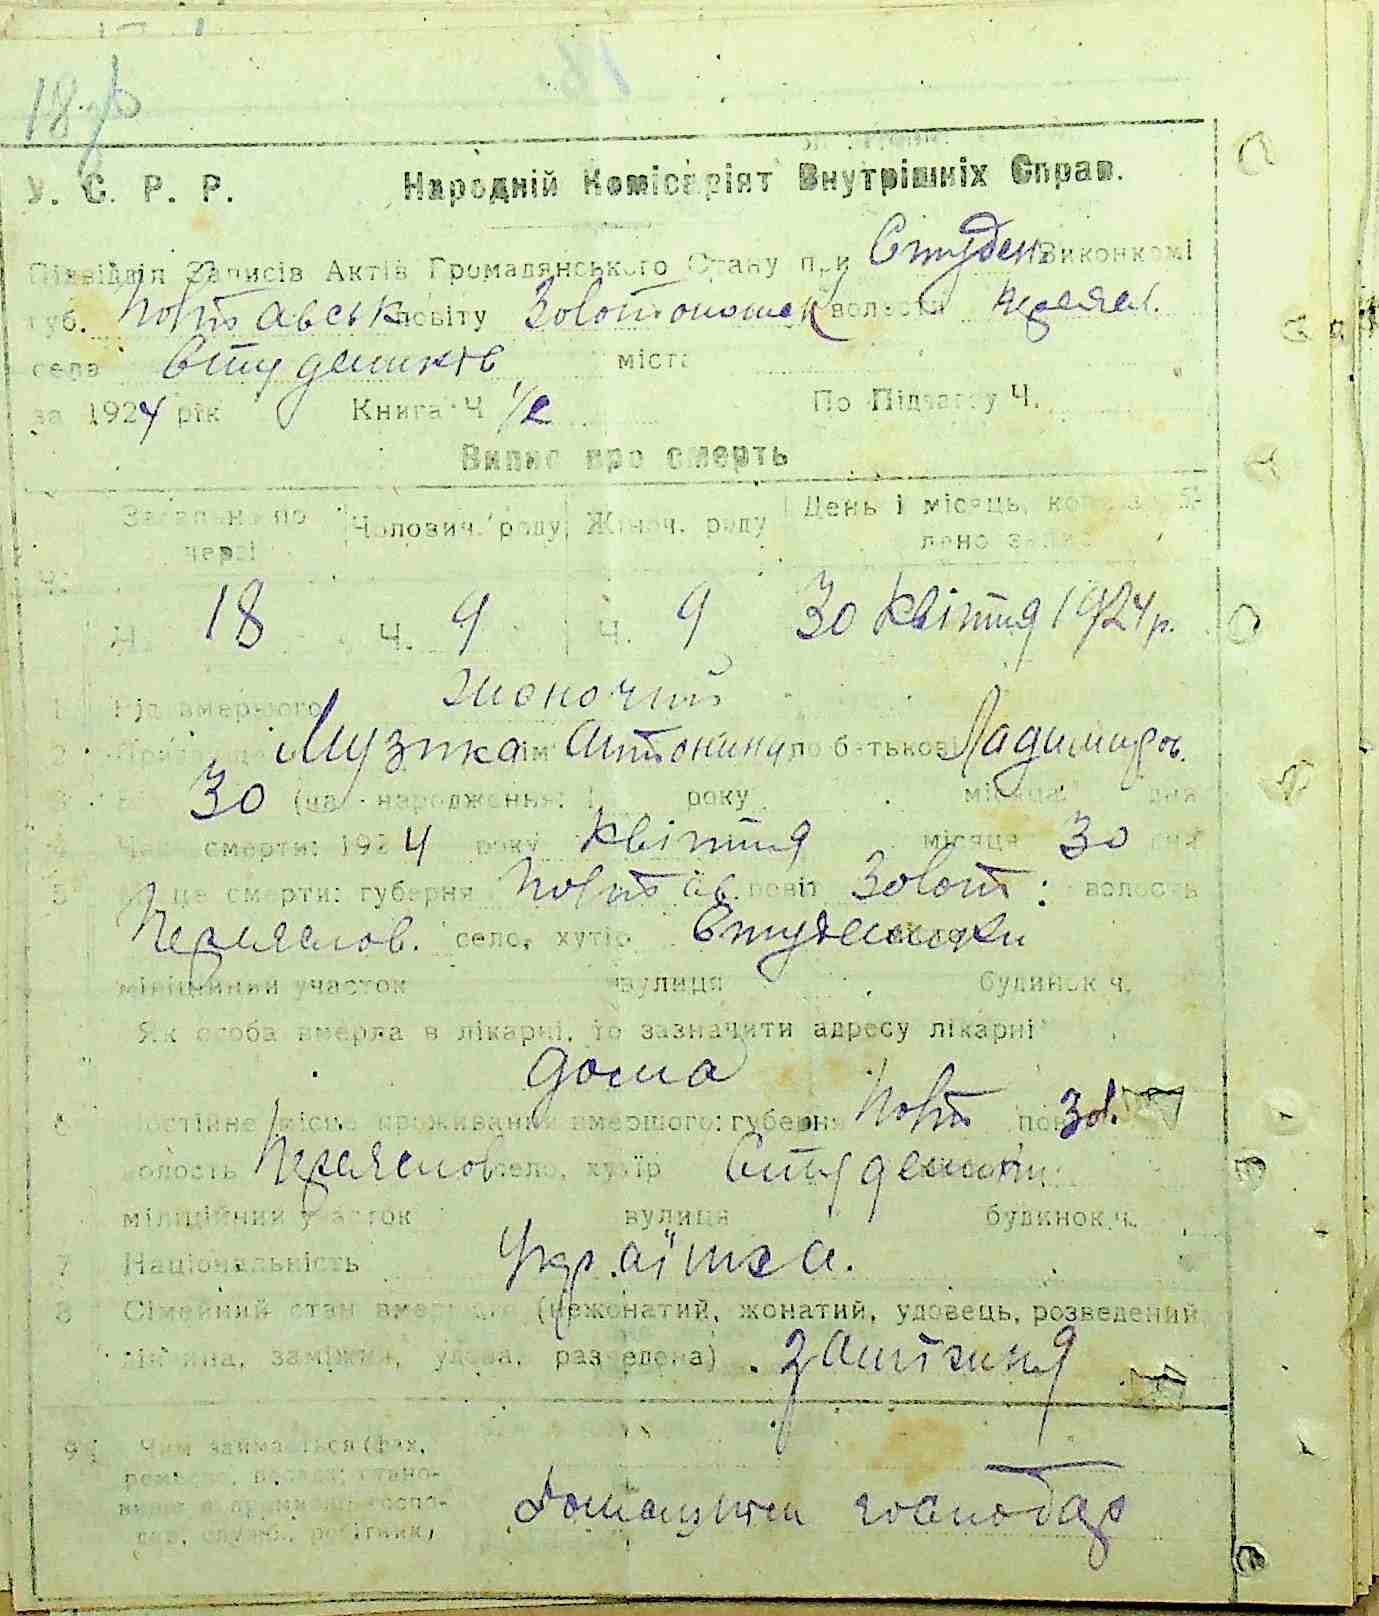 18
У. С. Р. Р. Народній Комісаріят Внутрішніх Справ.
Підвідділ Записів Актів Громадянського Стану при Студен. Виконкомі
губ. Полтавськ повіту Золотоношськ волости Переясл.
села Студеників міста
за 1924 рік Книга Ч. 1/2 По Підвагу Ч.
Випис про смерть
Загально по Чоловіч. роду Жіноч. роду День і місяць, коли
черзі
18 Ч. 9 Ч. 9 30 Квітня 1924 р.
1 Рід вмершого жоночий
2 Музика ім' Антонина по батькові Ладимиров.
3 30 (час народження: 1 року місяця дня
4 Час смерти: 1924 року Квітня місяця 30 дня
5 Місце смерти: губерня Полтав. повіт Золот: волость
Переяслов. село, хутір Студеники
міліційний участок вулиця будинок ч.
Як особа вмерла в лікарні, то зазначити адресу лікарні
дома
6 Постійне місце проживання вмершого: губерня Полт пов Зол.
волость Переяслов село, хутір Студеники
міліційний участок вулиця будинок ч.
7 Національність Українка.
8 Сімейний стан вмершого (нежонатий, жонатий, удовець, розведений
дівчина, заміжня, удова, разведена) . замізиня
9 Чим займається (фах,
ремесло, посада: стано-
господар
дар, служб., робітник)